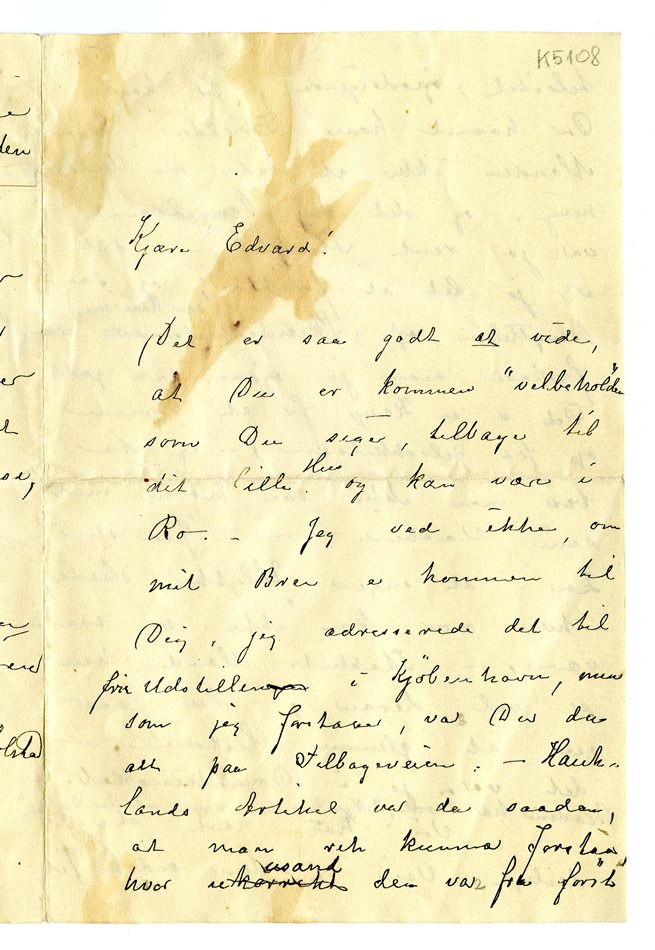 K5108
den
Kjære Edvard!
Det er saa godt at vide,
at Du er kommen "velbeholden"
som Du siger, tilbage til
dit lille Hus og kan være i
Ro. – Jeg ved ikke, om
mit Brev er kommen til
Dig, jeg adresserede det til
fri Udstillingen i Kjöbenhavn, men
som jeg forstaar, var Du da
alt paa Tilbageveien. – Hauk-
lands Artikel var da saadan,
at man kunna forstaa
hvor usand den var fra först